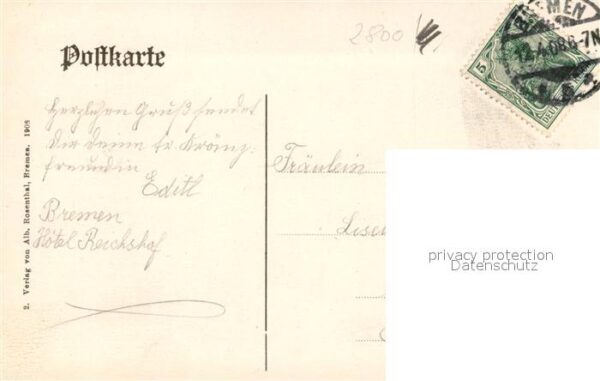 2800
BREMEN
12.4.08.6-7N
5
Postkarte
Herzlichen Gruß sendet
Dir deine tr. Kränz-
freundin
Edith
Bremen
Hôtel Reichshof
Fräulein
Lise
privacy protection
Datenschutz
2. Verlag von Alb. Rosenthal, Bremen. 1908